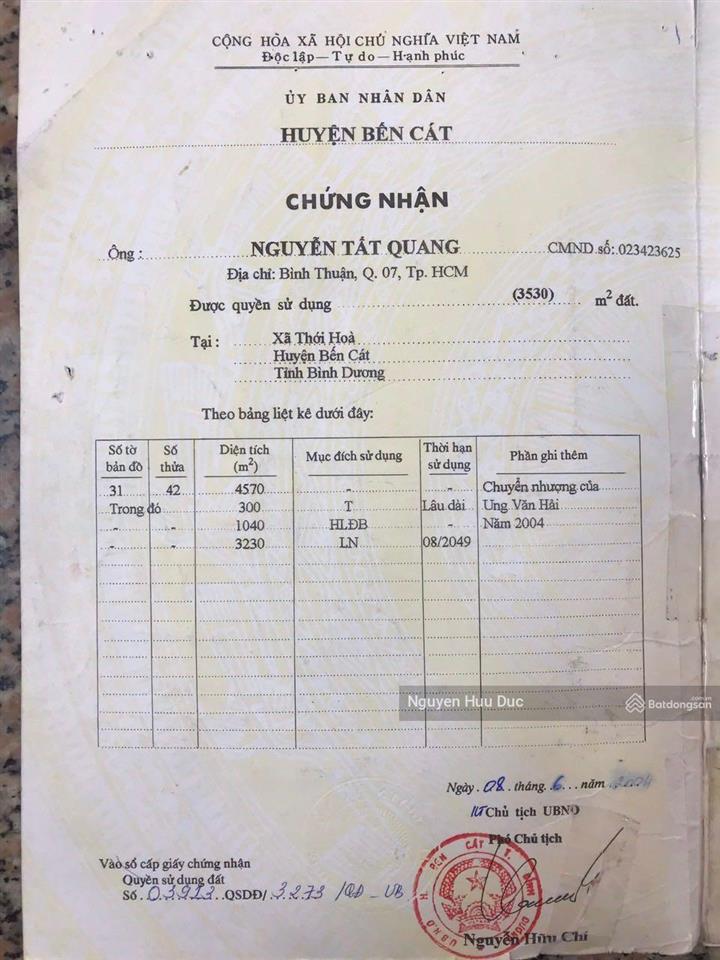 CỘNG HÒA XÃ HỘI CHỦ NGHĨA VIỆT NAM
Độc lập — Tự do — Hạnh phúc
ỦY BAN NHÂN DÂN
HUYỆN BẾN CÁT
CHỨNG NHẬN
Ông : NGUYỄN TẤT QUANG CMND số: 023423625
Địa chỉ: Bình Thuận, Q. 07, Tp. HCM
Được quyền sử dụng (3530) m² đất.
Tại : Xã Thới Hoà
Huyện Bến Cát
Tỉnh Bình Dương
Theo bảng liệt kê dưới đây:
Số tờ bản đồ Số thửa Diện tích (m²) Mục đích sử dụng Thời hạn sử dụng Phần ghi thêm
31 42 4570 - - Chuyển nhượng của
Trong đó 300 T Lâu dài Ung Văn Hải
- - 1040 HLĐB - Năm 2004
- - 3230 LN 08/2049
Nguyen Huu Duc
Batdongsan.com.vn
Ngày 08 tháng 6 năm 2004
KT Chủ tịch UBND
Phó Chủ tịch
Vào sổ cấp giấy chứng nhận
Quyền sử dụng đất
Số QSDĐ/ 3273 /QĐ - UB
U.B.N.D H. BẾN CÁT T. BÌNH DƯƠNG
Nguyễn Hữu Chí